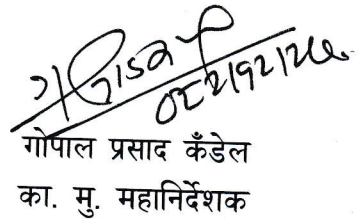 गोपाल प्रसाद कँडेल
का. मु. महानिर्देशक